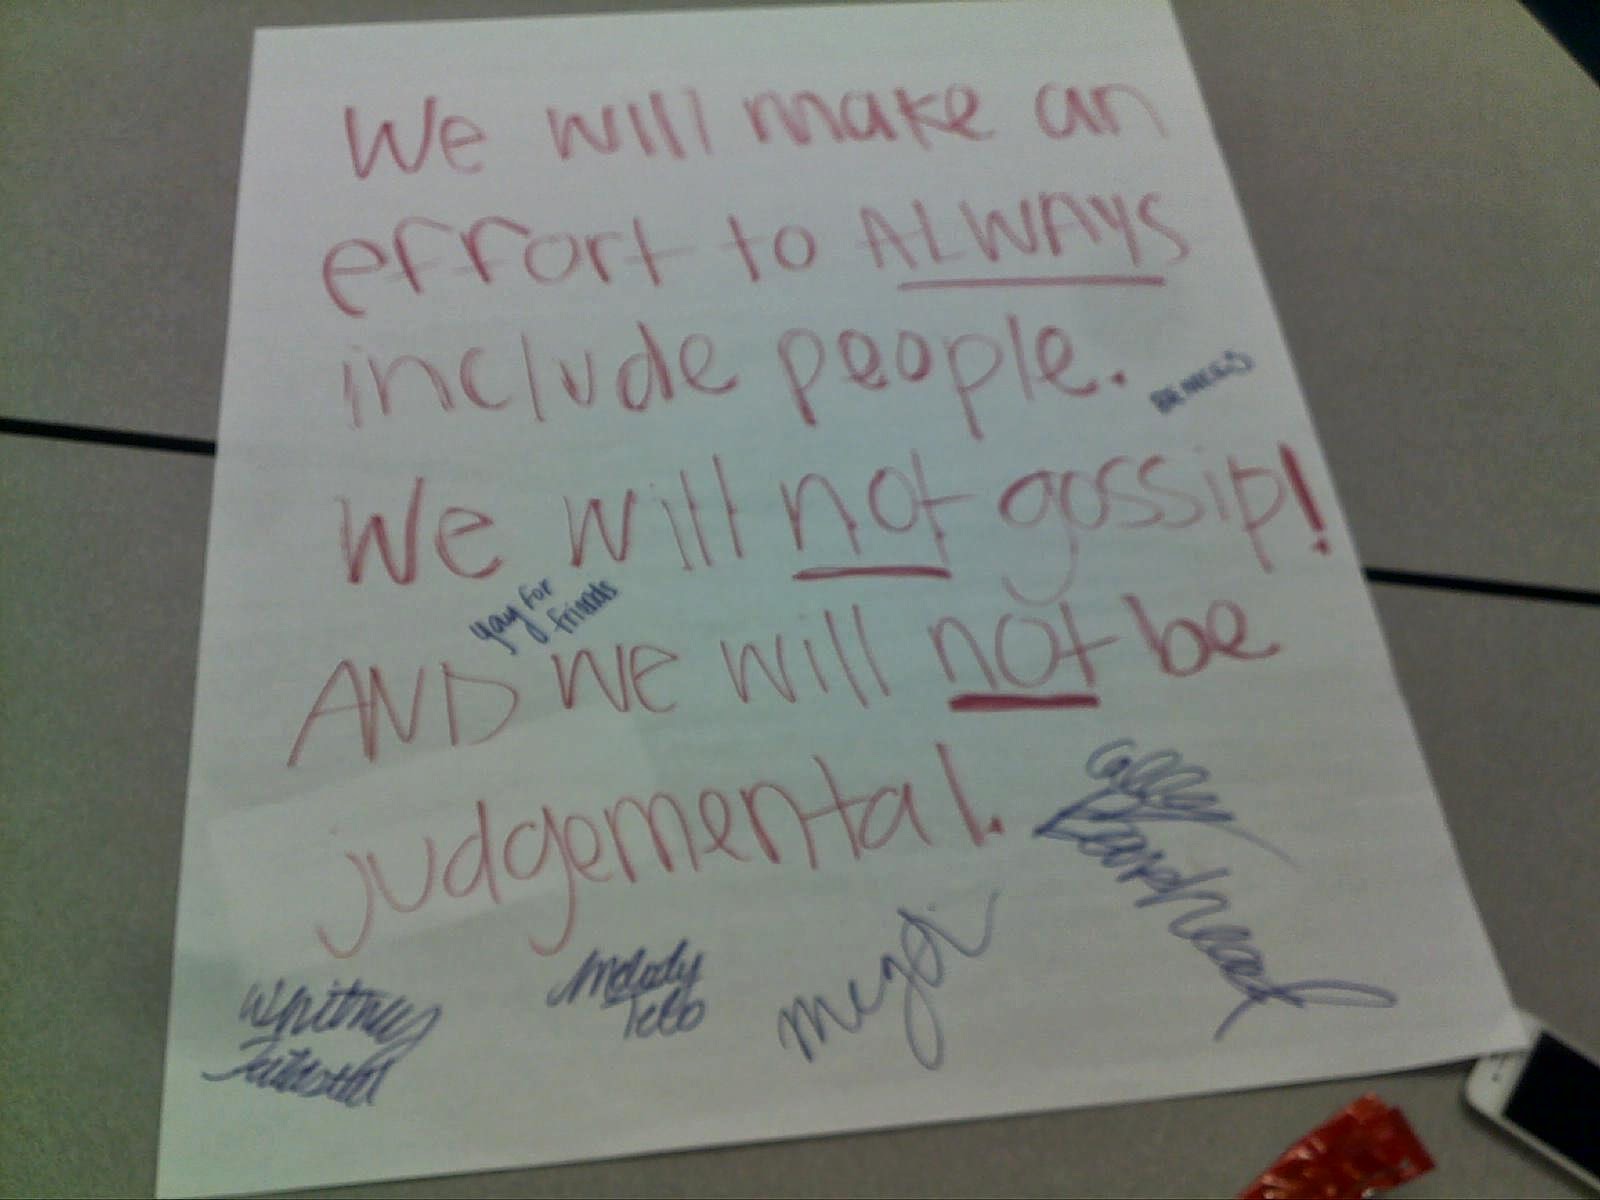 We will make an
effort to ALWAYS
include people.
We will not gossip!
yay for
friends
AND we will not be
judgemental.
Whitney
Melody